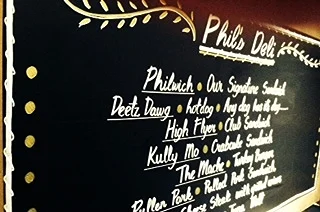 Phil's Deli
Philwich • Our Signature Sandwich
Deetz Dawg • hotdog • Any dog has its day....
High Flyer • Club Sandwich
Kully Mo • Crabcake Sandwich
The Macho • Turkey Burger
Pullen Pork • Pulled Pork Sandwich
Cheese Steak with